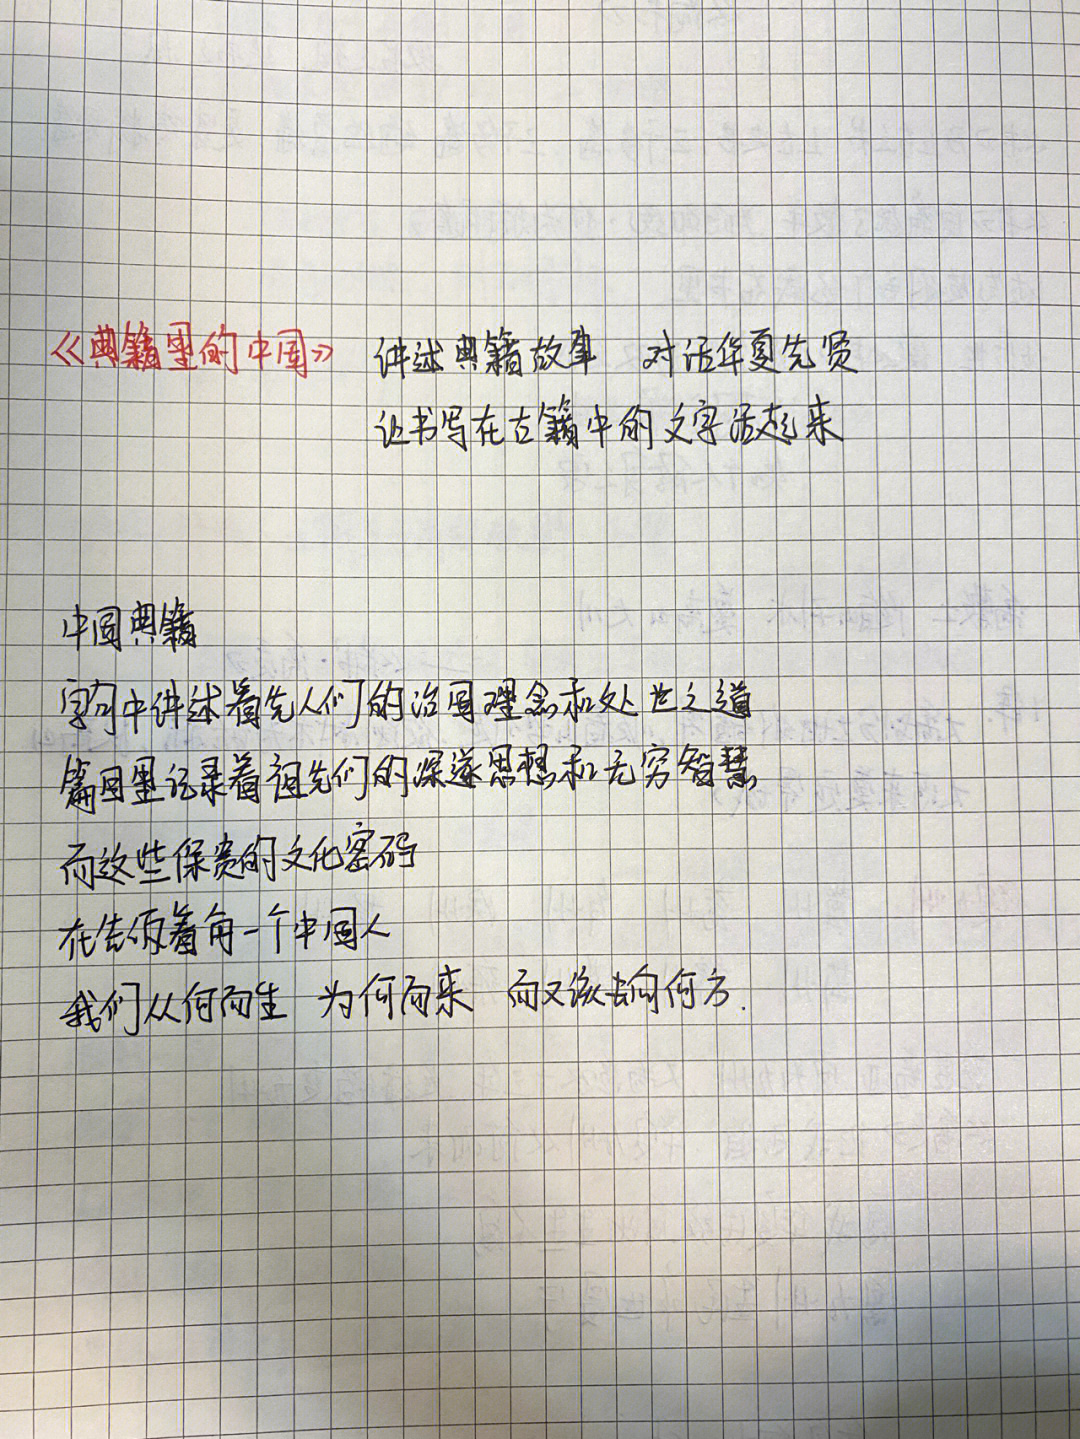 《典籍里的中国》 讲述典籍故事 对话华夏先贤
让书写在古籍中的文字活起来
中国典籍
字句中讲述着先人们的治国理念和处世之道
篇目里记录着祖先们的深邃思想和无穷智慧
而这些保贵的文化密码
在告诉着每一个中国人
我们从何而生 为何而来 而又该去向何方.